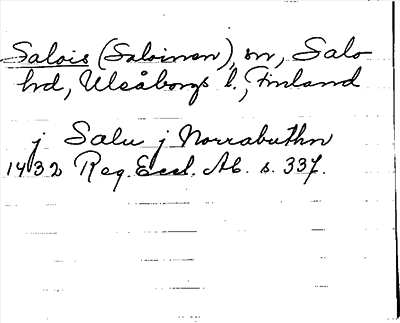 Salois (Saloinen), sn, Salo
hd, Uleåborgs l., Finland
j Salu j Norrabuthn
1432 Reg. Eccl. Ab. s. 337.